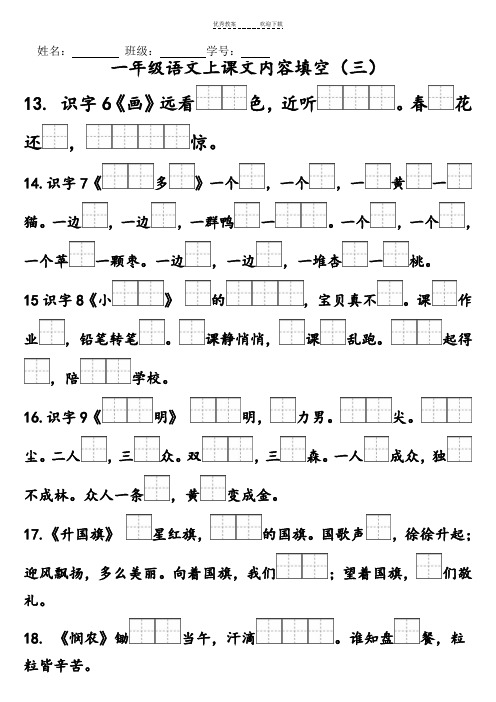 优秀教案 欢迎下载
姓名： 班级： 学号：
一年级语文上课文内容填空（三）
13. 识字6《画》远看 色，近听 。春 花
还 ， 惊。
14.识字7《 多 》一个 ，一个 ，一 黄 一
猫。一边 ，一边 ，一群鸭 一 。一个 ，一个 ，
一个苹 一颗枣。一边 ，一边 ，一堆杏 一 桃。
15识字8《小 》 的 ，宝贝真不 。课 作
业 ，铅笔转笔 。 课静悄悄， 课 乱跑。 起得
，陪 学校。
16.识字9《 明》 明， 力男。 尖。
尘。二人 ，三 众。双 ，三 森。一人 成众，独
不成林。众人一条 ，黄 变成金。
17.《升国旗》 星红旗， 的国旗。国歌声 ，徐徐升起；
迎风飘扬，多么美丽。向着国旗，我们 ；望着国旗， 们敬
礼。
18. 《悯农》锄 当午，汗滴 。谁知盘 餐，粒
粒皆辛苦。